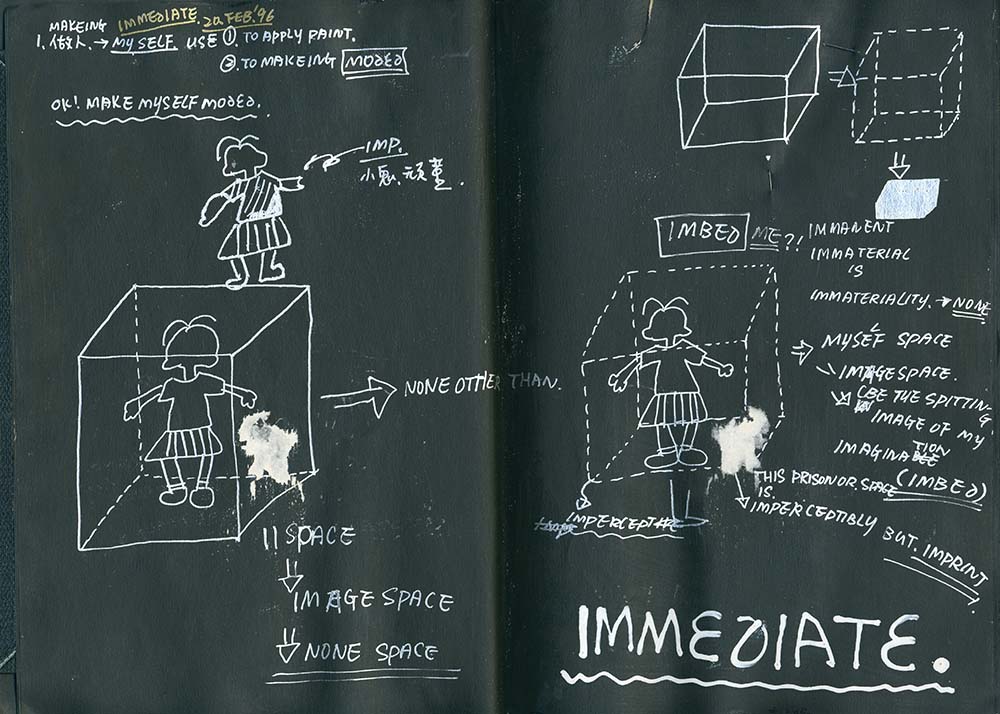 MAKEING IMMEDIATE. 20 FEB.'96
1. 做人. → MYSELF. USE ①. TO APPLY PAINT.
②. TO MAKEING MODEL
OK! MAKE MYSELF MODEL.
IMP.
小鬼. 頑童.
NONE OTHER THAN.
SPACE
IMAGE SPACE
NONE SPACE
IMBED ME?!
IMMANENT
IMMATERIAL
IS
IMMATERIALITY. → NONE
MYSELF SPACE
IMAGE SPACE.
(BE THE SPITTING
IMAGE OF MY
IMAGINATION
(IMBED)
THIS PRISON OR SPACE
IS.
IMPERCEPTIBLY BUT. IMPRINT
IMMEDIATE.